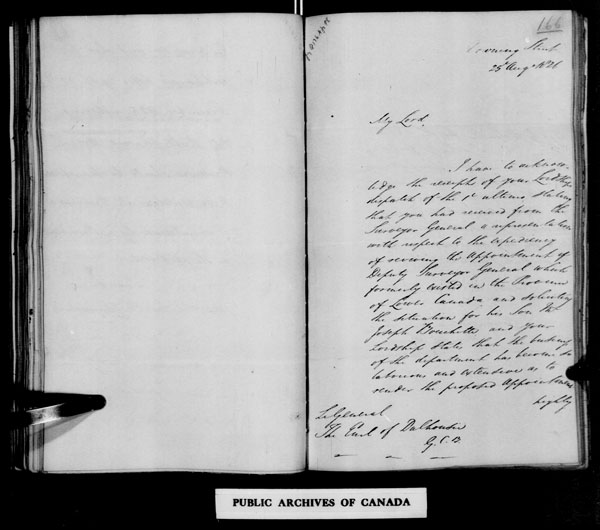 166
Downing Street
25 Augt 1826
My Lord,
I have to acknow-
ledge the receipt of your Lordship's
dispatch of the 1st ultimo stating
that you had received from the
Surveyor General a representation
with respect to the expediency
of reviving the appointment of
Deputy Surveyor General which
formerly existed in the Province
of Lower Canada and soliciting
the situation for his Son Mr
Joseph Bouchette and your
Lordship states that the business
of the department has become so
laborious and extensive as to
render the proposed appointment
highly
Lt General
The Earl of Dalhousie
G.C.B.
PUBLIC ARCHIVES OF CANADA